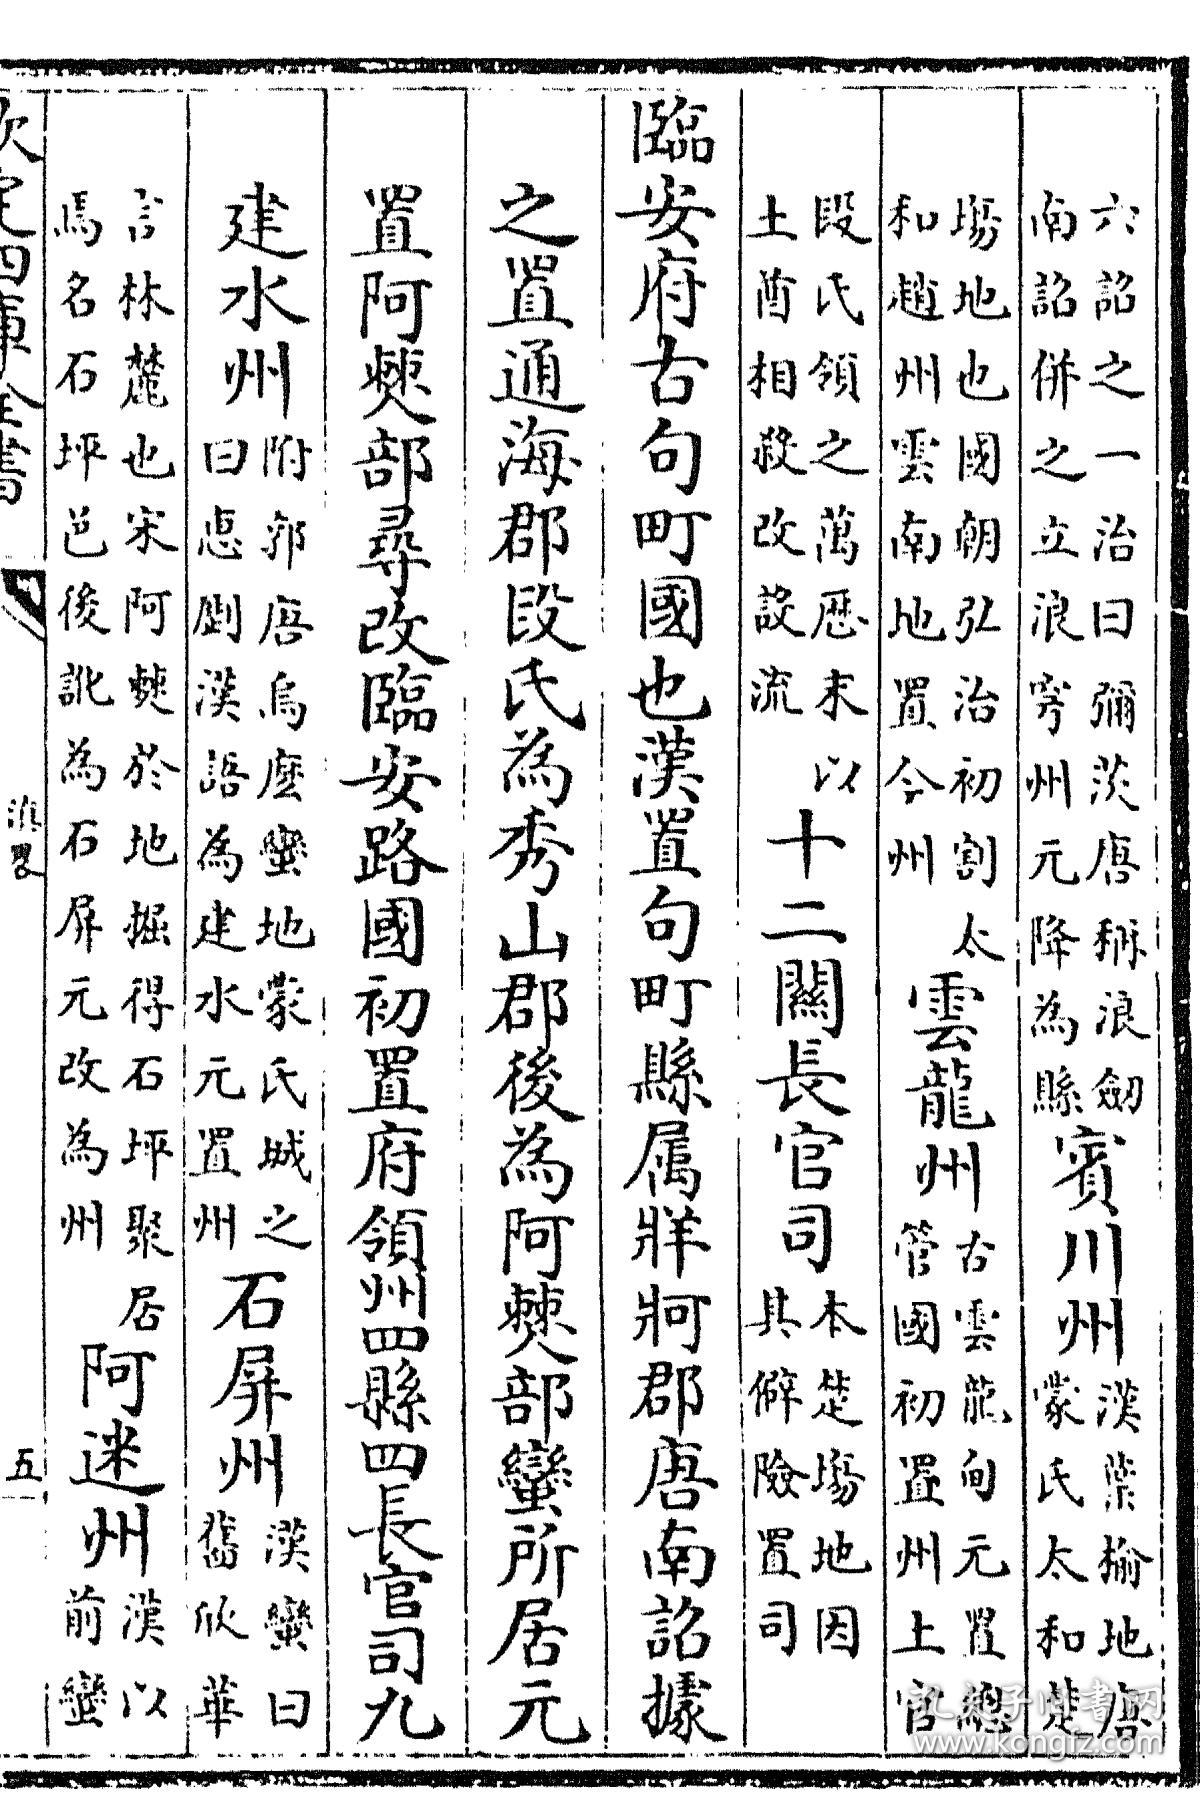 六詔之一治曰彌茨唐稱浪劒
南詔併之立浪穹州元降為縣
賓川州
漢葉榆地唐
蒙氏太和楚
塲地也國朝弘治初割太
和趙州雲南地置今州
雲龍州
古雲龍甸元置總
管國初置州土官
段氏領之萬歷末以
土酋相殺改設流
十二關長官司
本楚塲地因
其僻險置司
臨安府古句町國也漢置句町縣属牂牁郡唐南詔據
之置通海郡段氏為秀山郡後為阿僰部蠻所居元
置阿僰部尋改臨安路國初置府領州四縣四長官司九
建水州
附郭唐烏麽蠻地蒙氏城之
曰惠劘漢語為建水元置州
石屏州
漢蠻曰
舊欣華
言林麓也宋阿僰於地掘得石坪聚居
焉名石坪邑後訛為石屏元改為州
阿迷州
漢以
前蠻
欽定四庫全書
滇畧
五
孔夫子旧书网
www.kongfz.com